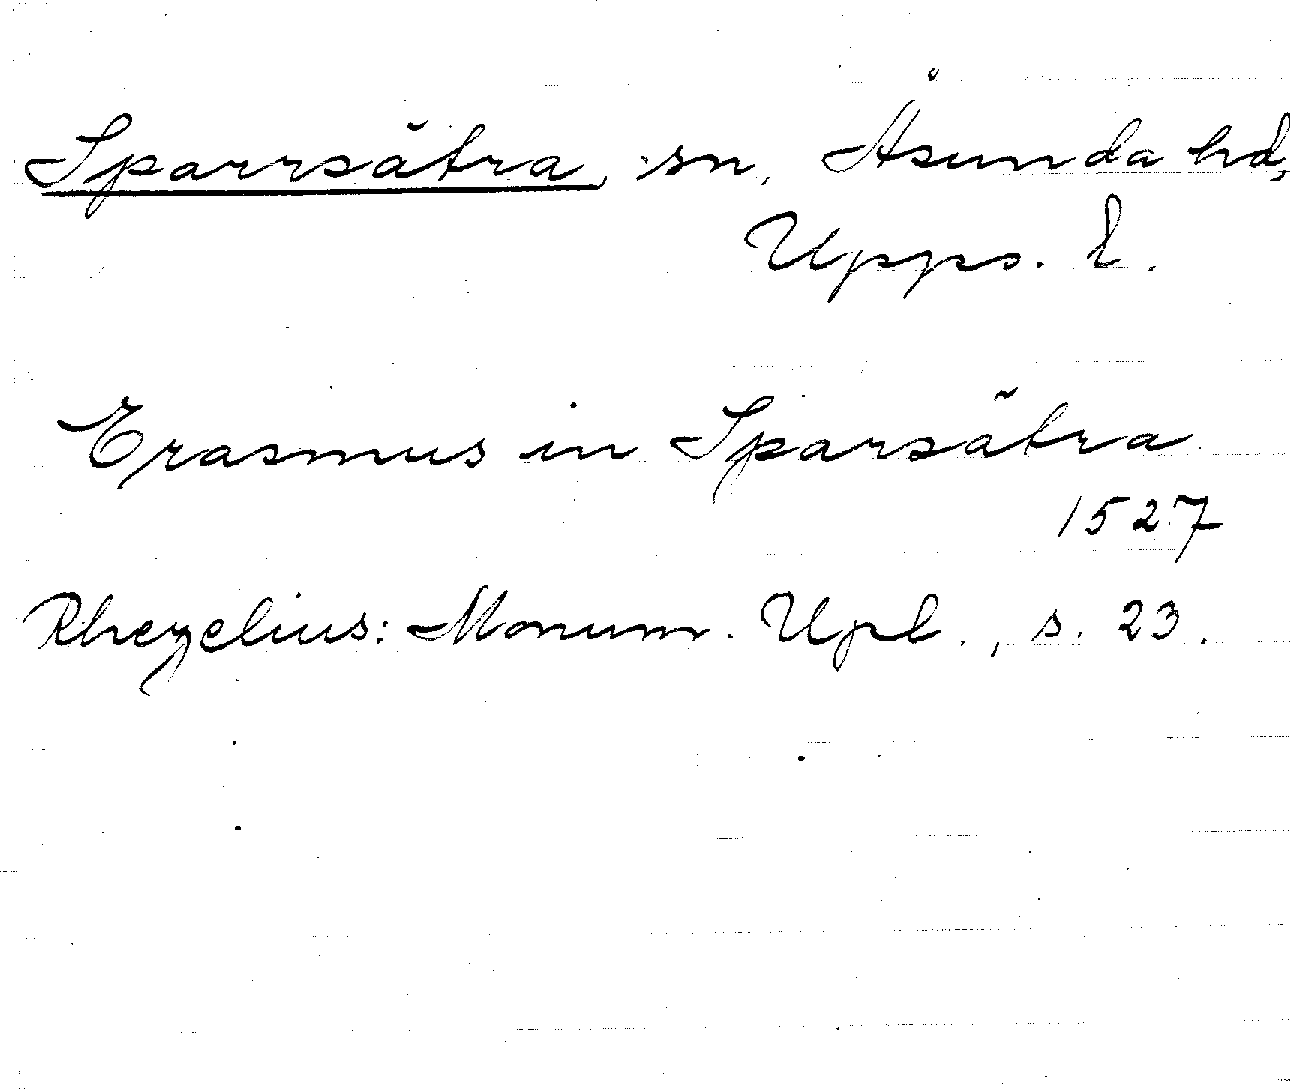 Sparrsätra, sn, Åsunda hd,
Upps. l.
Erasmus in Sparsätra
1527
Rhezelius: Monum. Upl., s. 23.